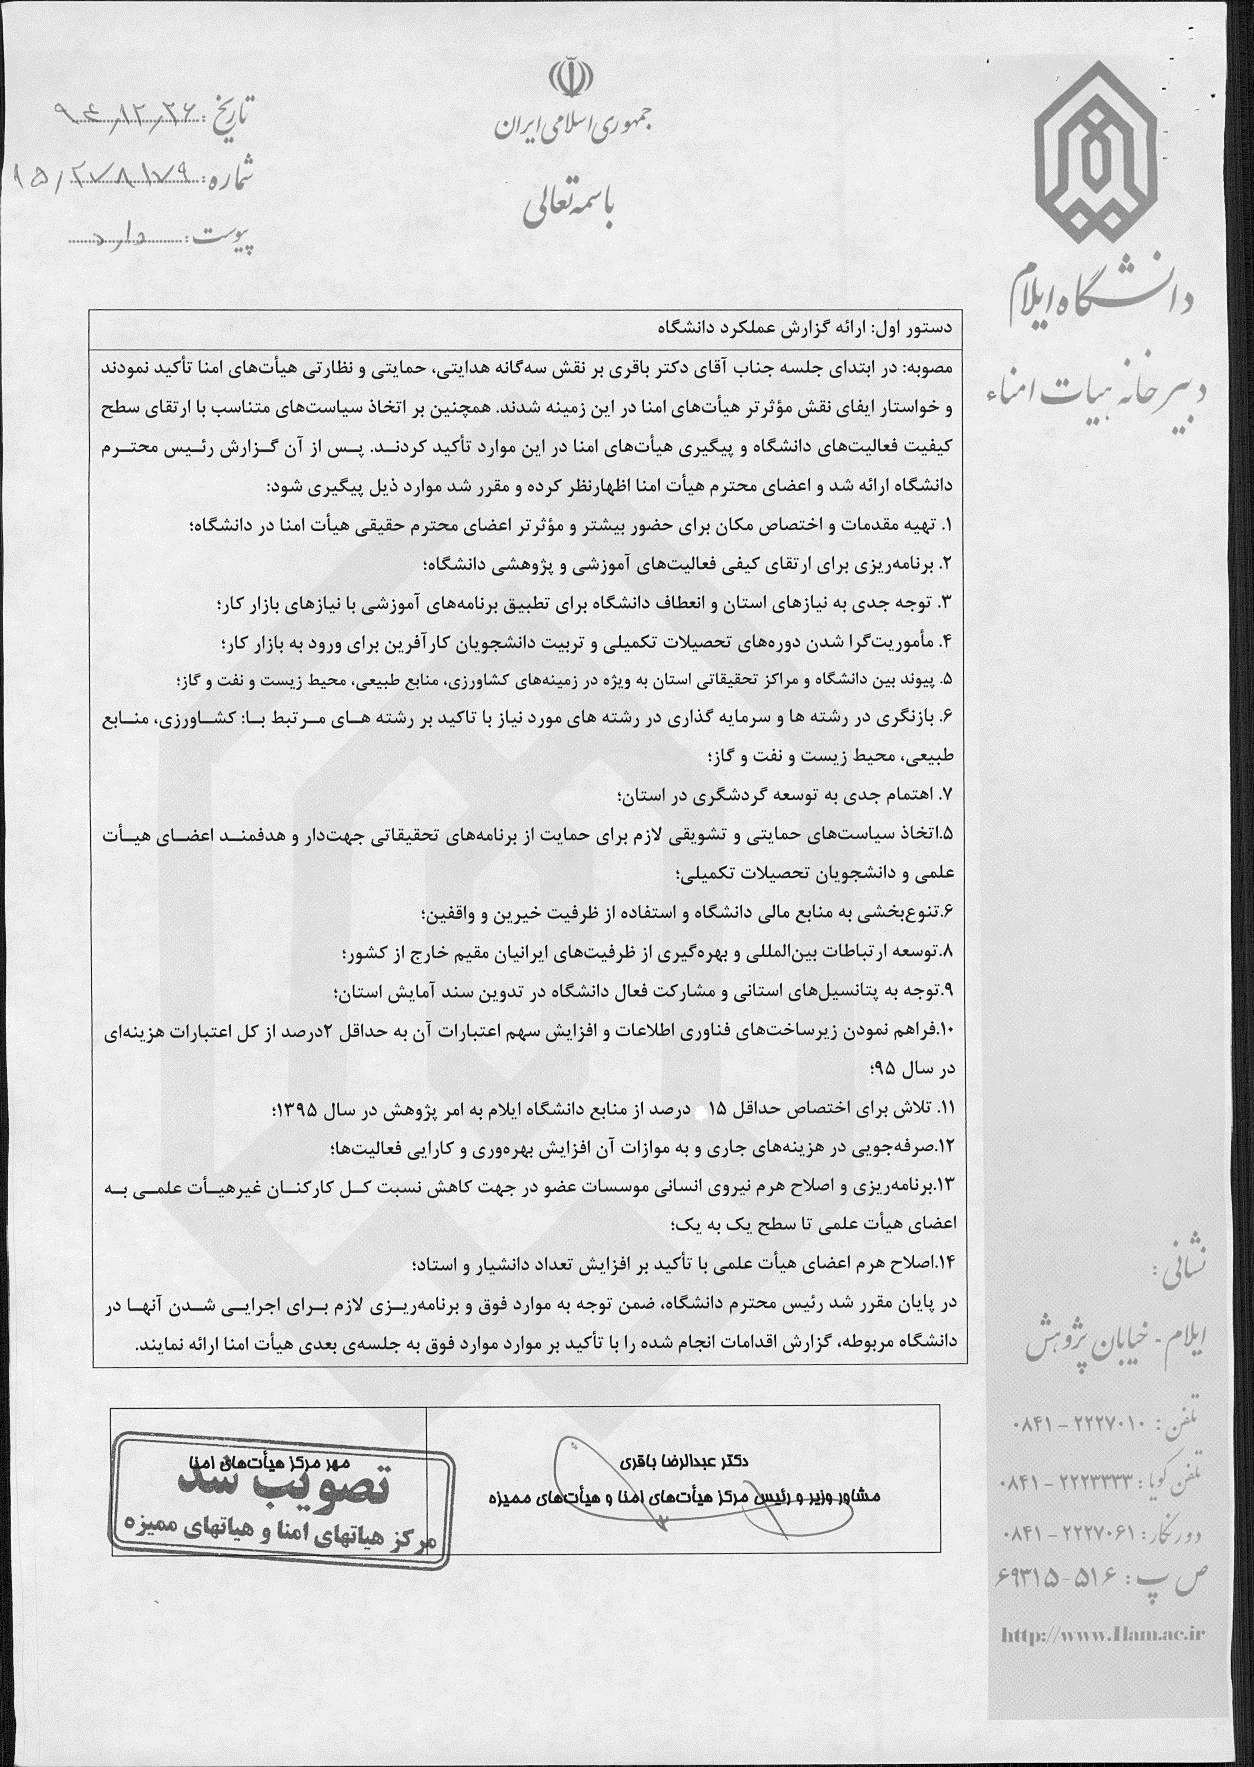 جمهوری اسلامی ایران
باسمه تعالی
تاریخ: ۹۴/۱۲/۲۶
شماره: ۱۵/۲۷۸۱۷۹
پیوست: دارد
دانشگاه ایلام
دبیرخانه هیات امناء
دستور اول: ارائه گزارش عملکرد دانشگاه
مصوبه: در ابتدای جلسه جناب آقای دکتر باقری بر نقش سه‌گانه هدایتی، حمایتی و نظارتی هیأت‌های امنا تأکید نمودند
و خواستار ایفای نقش مؤثرتر هیأت‌های امنا در این زمینه شدند. همچنین بر اتخاذ سیاست‌های متناسب با ارتقای سطح
کیفیت فعالیت‌های دانشگاه و پیگیری هیأت‌های امنا در این موارد تأکید کردند. پس از آن گزارش رئیس محترم
دانشگاه ارائه شد و اعضای محترم هیأت امنا اظهارنظر کرده و مقرر شد موارد ذیل پیگیری شود:
۱. تهیه مقدمات و اختصاص مکان برای حضور بیشتر و مؤثرتر اعضای محترم حقیقی هیأت امنا در دانشگاه؛
۲. برنامه‌ریزی برای ارتقای کیفی فعالیت‌های آموزشی و پژوهشی دانشگاه؛
۳. توجه جدی به نیازهای استان و انعطاف دانشگاه برای تطبیق برنامه‌های آموزشی با نیازهای بازار کار؛
۴. مأموریت‌گرا شدن دوره‌های تحصیلات تکمیلی و تربیت دانشجویان کارآفرین برای ورود به بازار کار؛
۵. پیوند بین دانشگاه و مراکز تحقیقاتی استان به ویژه در زمینه‌های کشاورزی، منابع طبیعی، محیط زیست و نفت و گاز؛
۶. بازنگری در رشته ها و سرمایه گذاری در رشته های مورد نیاز با تاکید بر رشته های مرتبط با: کشاورزی، منابع
طبیعی، محیط زیست و نفت و گاز؛
۷. اهتمام جدی به توسعه گردشگری در استان؛
۵.اتخاذ سیاست‌های حمایتی و تشویقی لازم برای حمایت از برنامه‌های تحقیقاتی جهت‌دار و هدفمند اعضای هیأت
علمی و دانشجویان تحصیلات تکمیلی؛
۶.تنوع‌بخشی به منابع مالی دانشگاه و استفاده از ظرفیت خیرین و واقفین؛
۸.توسعه ارتباطات بین‌المللی و بهره‌گیری از ظرفیت‌های ایرانیان مقیم خارج از کشور؛
۹.توجه به پتانسیل‌های استانی و مشارکت فعال دانشگاه در تدوین سند آمایش استان؛
۱۰.فراهم نمودن زیرساخت‌های فناوری اطلاعات و افزایش سهم اعتبارات آن به حداقل ۲درصد از کل اعتبارات هزینه‌ای
در سال ۹۵؛
۱۱. تلاش برای اختصاص حداقل ۱۵ درصد از منابع دانشگاه ایلام به امر پژوهش در سال ۱۳۹۵؛
۱۲.صرفه‌جویی در هزینه‌های جاری و به موازات آن افزایش بهره‌وری و کارایی فعالیت‌ها؛
۱۳.برنامه‌ریزی و اصلاح هرم نیروی انسانی موسسات عضو در جهت کاهش نسبت کل کارکنان غیرهیأت علمی به
اعضای هیأت علمی تا سطح یک به یک؛
۱۴.اصلاح هرم اعضای هیأت علمی با تأکید بر افزایش تعداد دانشیار و استاد؛
در پایان مقرر شد رئیس محترم دانشگاه، ضمن توجه به موارد فوق و برنامه‌ریزی لازم برای اجرایی شدن آنها در
دانشگاه مربوطه، گزارش اقدامات انجام شده را با تأکید بر موارد موارد فوق به جلسه‌ی بعدی هیأت امنا ارائه نمایند.
دکتر عبدالرضا باقری
مشاور وزیر و رئیس مرکز هیأت‌های امنا و هیأت‌های ممیزه
مهر مرکز هیأت‌های امنا
تصویب شد
مرکز هیاتهای امنا و هیاتهای ممیزه
نشانی:
ایلام - خیابان پژوهش
تلفن: ۲۲۲۷۰۱۰ - ۰۸۴۱
تلفن گویا: ۲۲۲۳۳۳۳ - ۰۸۴۱
دورنگار: ۲۲۲۷۰۶۱ - ۰۸۴۱
ص پ: ۵۱۶-۶۹۳۱۵
http://www.Ilam.ac.ir